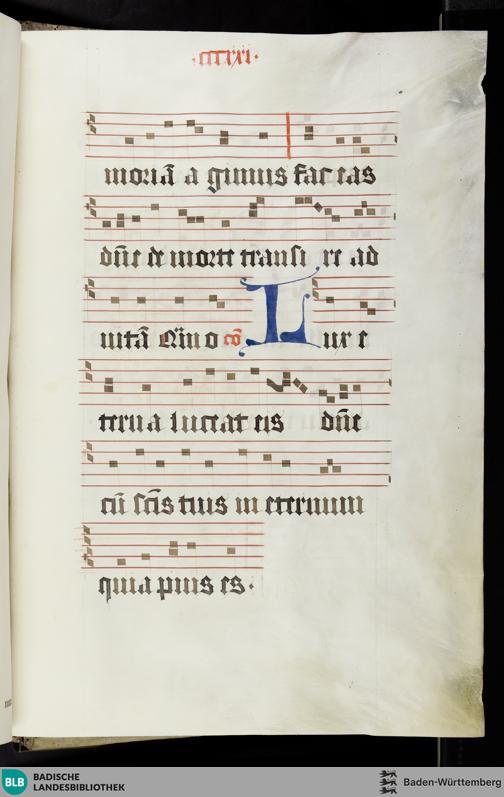 ·ccccxi·
moriã a gimus fac eas
dñe de morte transi re ad
uitã Q̃ino cõ Lux e
terna luceat eis dñe
cũ scĩs tuis in eternum
quia pius es·
BLB BADISCHE
LANDESBIBLIOTHEK
Baden-Württemberg